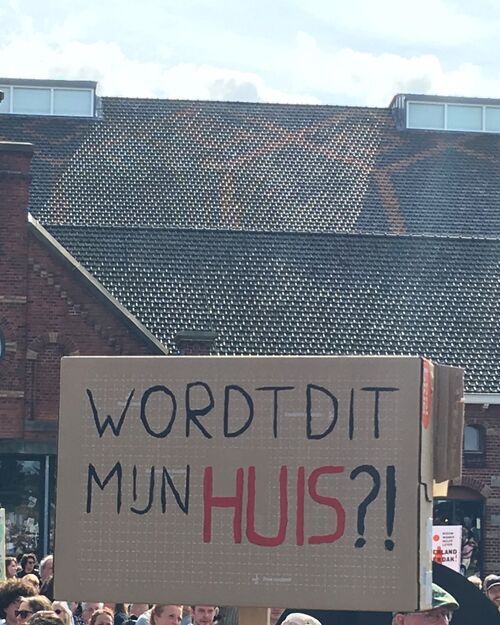 WORDT DIT
MIJN HUIS?!
RLAND
DAK!